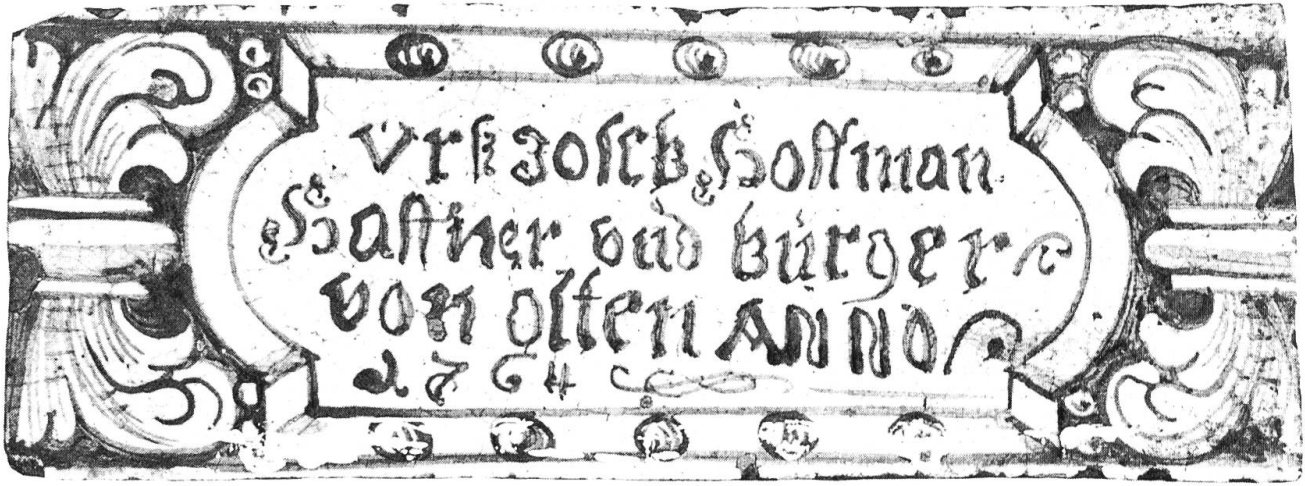 Urs Joseb Hoffman
Haffner vnd bürger
von olten ANNO
1764